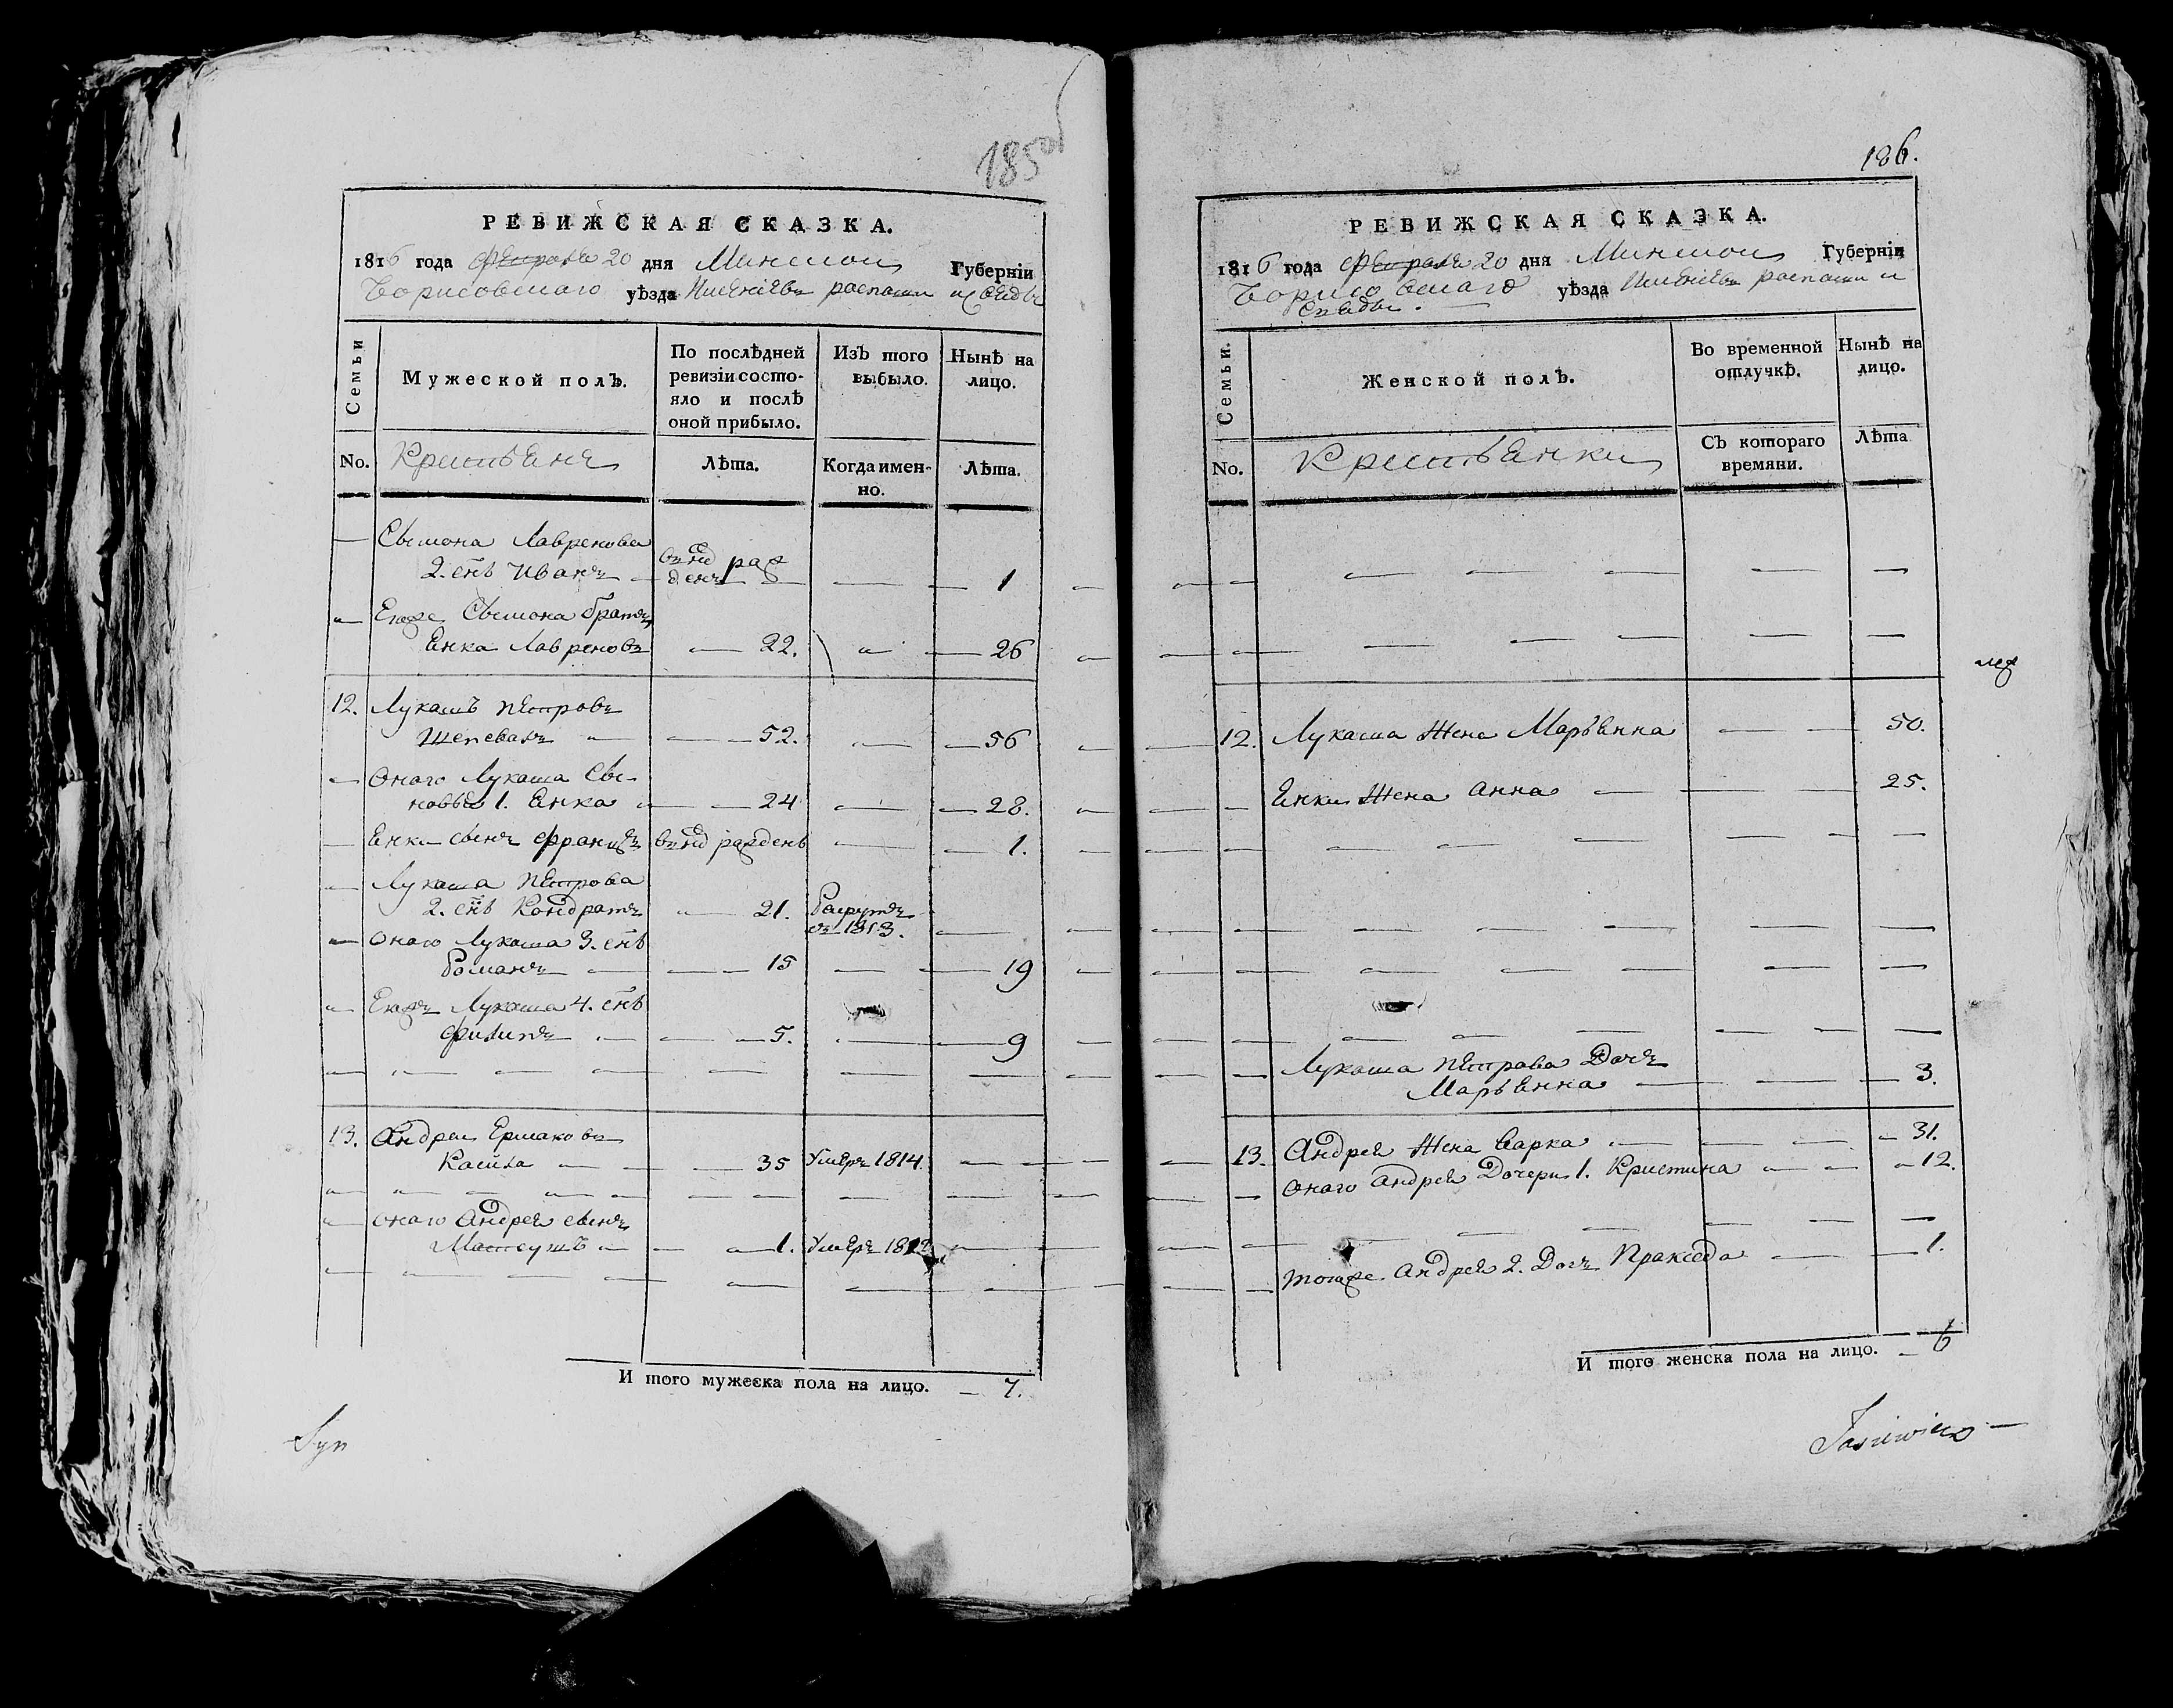 185об
РЕВИЖСКАЯ СКАЗКА.
1816 года февраля 20 дня Минской Губерніи
Борисовскаго уѣзда
Семьи
Мужеской полъ.
По послѣдней ревизіи состо-
яло и послѣ
оной прибыло.
Изъ того
выбыло.
Нынѣ на
лицо.
No. Крестьяне
Лѣта.
Когда имен-
но.
Лѣта.
Сымона Лавренова
2. снъ Иванъ 1
Егоже Сымона братъ
Енка Лавреновъ 22. 26
12. Лукашъ Петровъ
52. 56
Онаго Лукаша Сы-
новья 1. Енка 24 28.
Енки сынъ Францъ 1.
Лукаша Петрова
2. снъ Кондратъ 21. Рекрутъ
въ 1813.
Онаго Лукаша 3. снъ
Романъ 15 19
Егожъ Лукаша 4. снъ
Филипъ 5. 9
13. Андрей Ермаковъ
35 Умеръ 1814.
Онаго Андрея сынъ
1. Умеръ 1812
И того мужеска пола на лицо. 7.
Syn
186.
РЕВИЖСКАЯ СКАЗКА.
1816 года февраля 20 дня Минской Губерніи
Борисовскаго уѣзда
Семьи.
Женской полъ.
Во временной
отлучкѣ.
Нынѣ на
лицо.
No. Крестьянки
Съ котораго
времяни.
Лѣта
12. Лукаша Жена Марьянна 50.
Енки Жена Анна 25.
Лукаша Петрова Дочъ
Марьянна 3.
13. Андрея Жена Варка 31.
Онаго Андрея Дочери 1. Кристина 12.
Тогоже Андрея 2. Дочъ Пракседа 1.
И того женска пола на лицо. 6